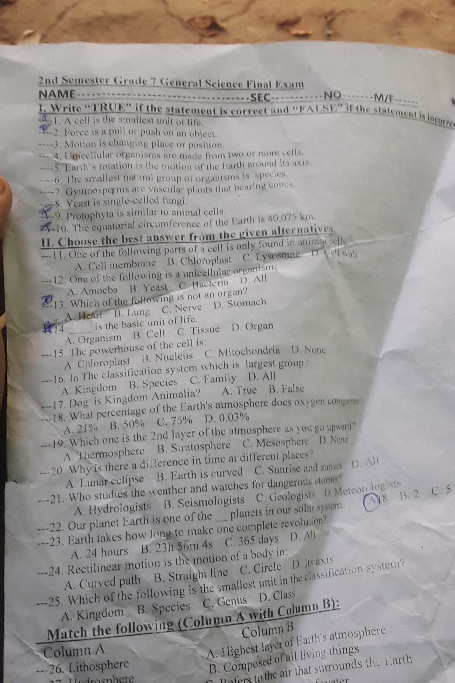 2nd Semester Grade 7 General Science Final Exam
NAME---------------------------------SEC-----------NO-------M/F------
I. Write "TRUE" if the statement is correct and "FALSE" if the statement is incorrect
1. A cell is the smallest unit of life.
2. Force is a pull or push on an object.
----3. Motion is changing place or position.
----4. Unicellular organisms are made from two or more cells.
----5. Earth's rotation is the motion of the Earth around its axis.
----6. The smallest natural group of organisms is species.
----7. Gymnosperms are vascular plants that bearing cones.
---8. Yeast is single-celled fungi.
9. Protophyta is similar to animal cells.
10. The equatorial circumference of the Earth is 40,075 km.
II. Choose the best answer from the given alternatives.
---11. One of the following parts of a cell is only found in animal cells
A. Cell membrane B. Chloroplast C. Lysosome D. Cell wall
---12. One of the following is a unicellular organism:
A. Amoeba B. Yeast C. Bacteria D. All
13. Which of the following is not an organ?
A. Heart B. Lung C. Nerve D. Stomach
14. ____ is the basic unit of life.
A. Organism B. Cell C. Tissue D. Organ
---15. The powerhouse of the cell is:
A. Chloroplast B. Nucleus C. Mitochondria D. None
---16. In The classification system which is largest group :
A. Kingdom B. Species C. Family D. All
---17. Dog is Kingdom Animalia? A. True B. False
---18. What percentage of the Earth's atmosphere does oxygen
A. 21% B. 50% C. 75% D. 0.03%
---19. Which one is the 2nd layer of the atmosphere as you go upward?
A. Thermosphere B. Stratosphere C. Mesosphere D. None
---20. Why is there a difference in time at different places?
A. Lunar eclipse B. Earth is curved C. Sunrise and sunset D. All
---21. Who studies the weather and watches for dangerous storms?
A. Hydrologists B. Seismologists C. Geologists D. Meteorologists
---22. Our planet Earth is one of the __ planets in our solar system. A. 8 B. 2 C. 5
---23. Earth takes how long to make one complete revolution?
A. 24 hours B. 23h 56m 4s C. 365 days D. All
---24. Rectilinear motion is the motion of a body in:
A. Curved path B. Straight line C. Circle D. In axis
---25. Which of the following is the smallest unit in the classification system?
A. Kingdom B. Species C. Genus D. Class
Match the following (Column A with Column B):
Column A Column B
---26. Lithosphere A. Highest layer of Earth's atmosphere
B. Composed of all living things
27. Hydrosphere C. Refers to the air that surrounds the Earth